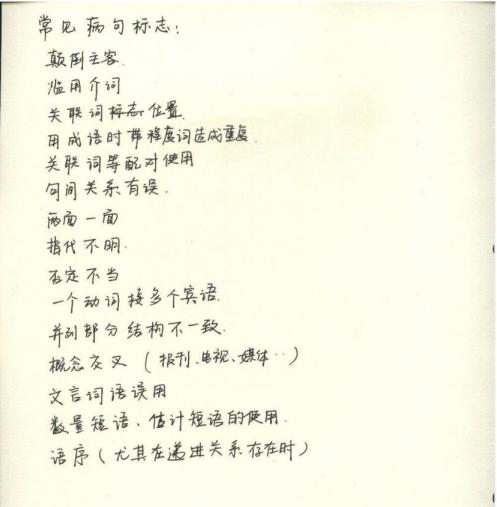 常见病句标志：
颠倒主客.
滥用介词
关联词标志位置.
用成语时带程度词造成重复.
关联词等配对使用
句间关系有误.
两面一面
指代不明.
否定不当
一个动词接多个宾语.
并列部分结构不一致.
概念交叉（报刊、电视、媒体··）
文言词语误用
数量短语、估计短语的使用.
语序（尤其在递进关系存在时）